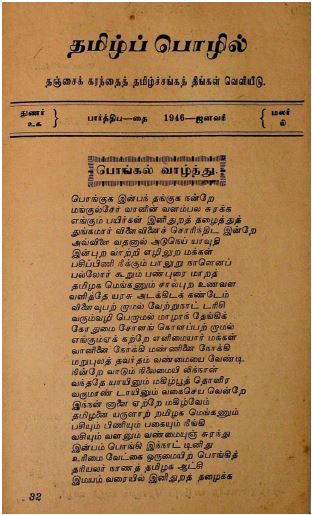 தமிழ்ப் பொழில்
தஞ்சைக் கரந்தைத் தமிழ்ச்சங்கத் திங்கள் வெளியீடு.
துணர் உக } பார்த்திப—தை 1946—ஜனவரி { மலர் ம்
பொங்கல் வாழ்த்து.
பொங்குக இன்பந் தங்குக நன்றே
மங்குல்சேர் வானின் வளம்பல சுரக்க
எங்கும் பயிர்கள் இனிதுறத் தழைத்துத்
துங்கமார் விளைவினைச் சொரிந்திட இன்றே
அவ்வினை வதனால் அடுநெய் யாவுதி
இன்புற வாற்றி எழிலுற மக்கள்
பசிப்பிணி நீக்கும் பாலூறு காளெனப்
பல்லோர் கூறும் பண்புரை மாறத்
தமிழக மெங்கணும் சால்புற உணவள
வளித்தே யரசு அடக்கிடக் கண்டேம்
விளைவுபற் றாமல் வேற்றுநாட் டரிசி
வரும்வழி பெருமல் மாழாந் தேங்கிக்
கோதுமை சோளங் கொளப்பற் றாமல்
எங்கும்ஏக் கற்றே எளிமையார் மக்கள்
வானினை நோக்கி மண்ணினை நோக்கி
மறுபுலத் தவர்தம் வண்மையை வேண்டி
நின்றே வாடும் நிலைமையி லிந்நாள்
வந்ததே யாயினும் மகிழ்பூத் தொளிர
வருமாண் டாயினும் வகைசெய வென்றே
இந்நன் னாளை ஏற்றே மகிழ்வேம்
தமிழனை யருளாற் றமிழக மெங்கணும்
பசியும் பிணியும் பகையும் நீங்கி
வசியும் வளனும் வண்மையுஞ் சுரந்து
இன்பம் பொங்கி இந்நாட் டினிது
உரிமை வேட்கை ஒருமையிற் பொங்கித்
தரியலர் காணத் தமிழக ஆட்சி
இமயம் வரையில் இனிதுறத் தழைக்க
32